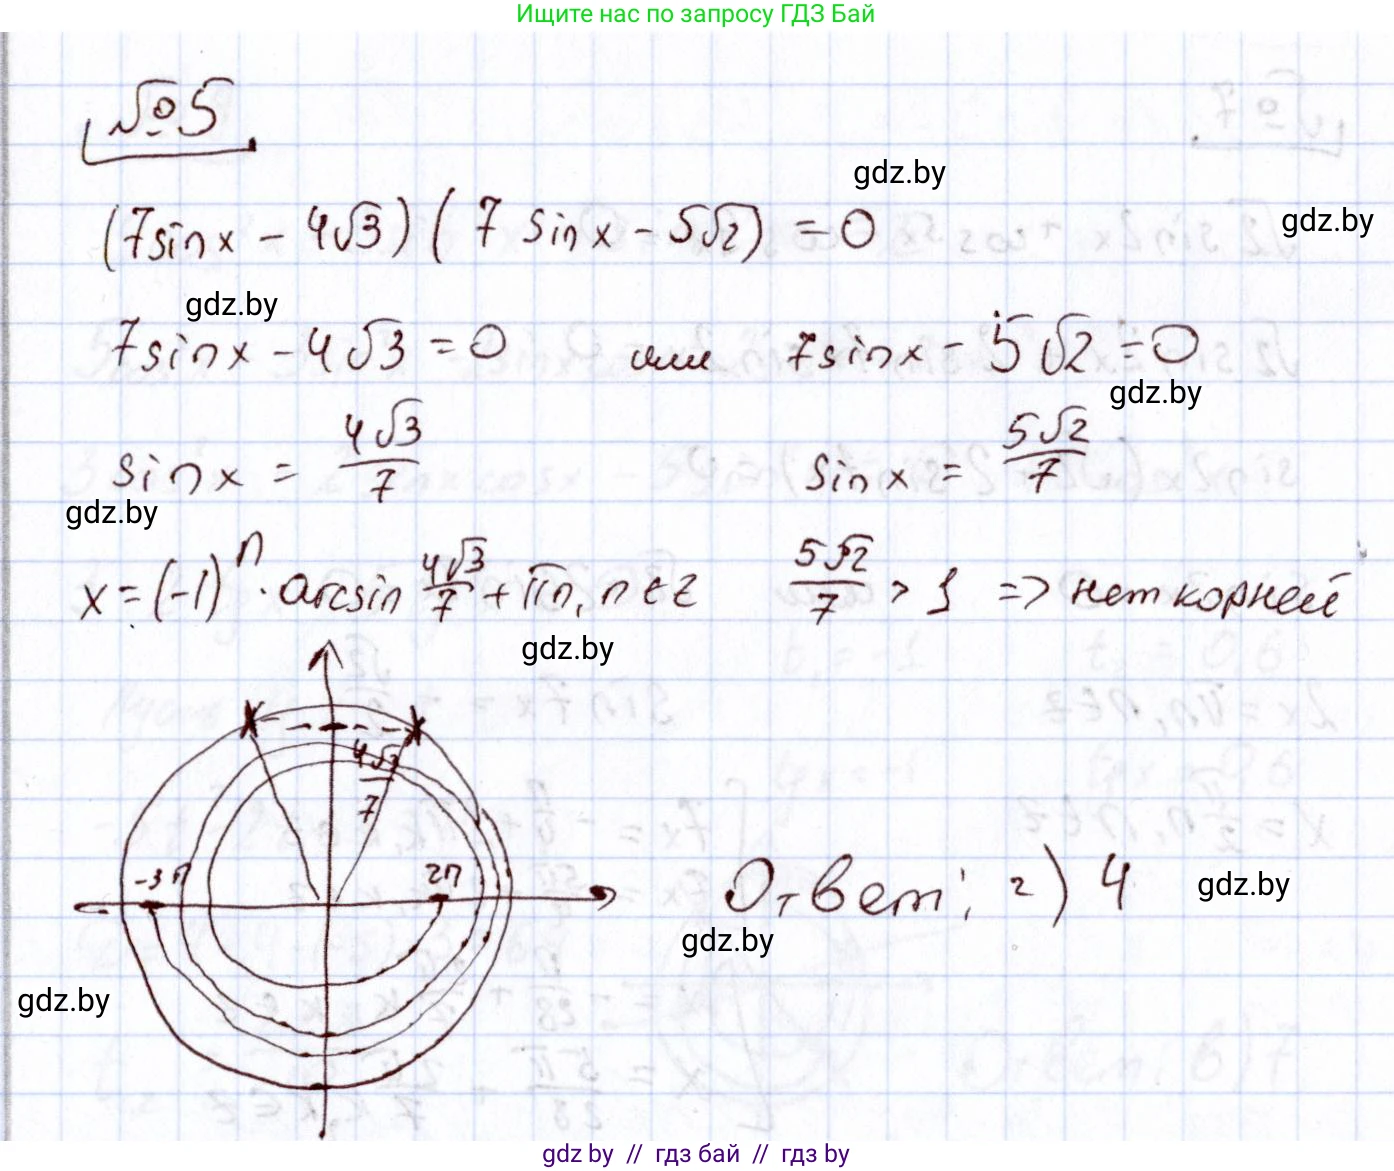 Ищите нас по запросу ГДЗ Бай
№5
gdz.by
gdz.by
(7sinx - 4√3)(7sinx - 5√2) = 0
gdz.by
7sinx - 4√3 = 0 или 7sinx - 5√2 = 0
gdz.by
sinx = 4√3/7 sinx = 5√2/7
gdz.by
x = (-1)^n · arcsin 4√3/7 + πn, n∈Z 5√2/7 > 1 => нет корней
gdz.by
4√3/7
-3π 2π
Ответ: г) 4
gdz.by
gdz.by
gdz.by
gdz by // гдз бай // гдз by